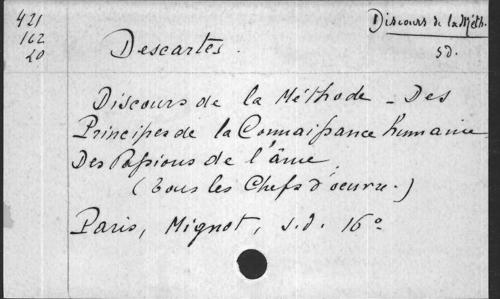 421
162
20
Discours de la Méth.
s.d.
Descartes.
Discours de la Méthode _ Des
Principes de la Connaissance humaine
Des Passions de l'âme
(Tous les Chefs d'oeuvre.)
Paris, Mignot, s.d. 16°